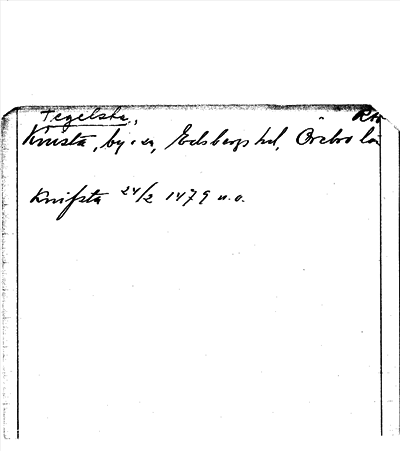 Tegelsta,
Knista, by i sn, Edsbergs hd, Örebro län
Knifsta 24/2 1479 u.o.